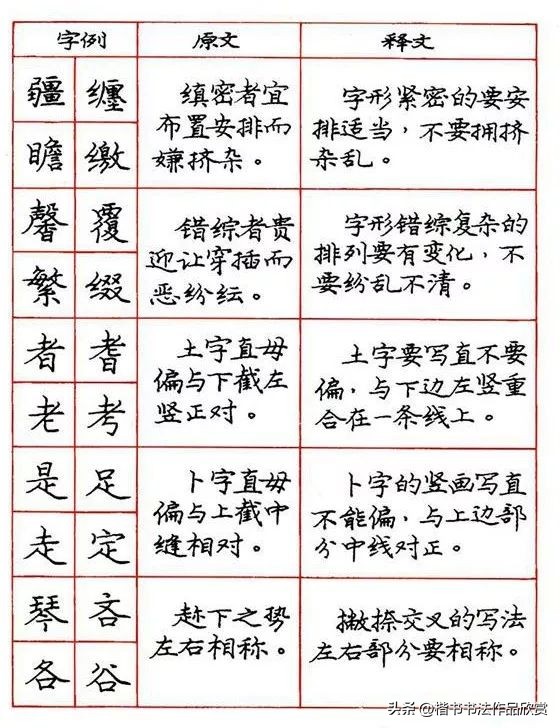 字例 原文 释文
疆 缠
瞻 缴
缜密者宜
布置安排而
嫌挤杂。
字形紧密的要安
排适当，不要拥挤
杂乱。
馨 覆
繁 缀
错综者贵
迎让穿插而
恶纷纭。
字形错综复杂的
排列要有变化，不
要纷乱不清。
者 耆
老 考
土字直毋
偏与下截左
竖正对。
土字要写直不要
偏，与下边左竖重
合在一条线上。
是 足
走 定
卜字直毋
偏与上截中
缝相对。
卜字的竖画写直
不能偏，与上边部
分中线对正。
琴 吝
各 谷
趁下之势
左右相称。
撇捺交叉的写法
左右部分要相称。
头条 @楷书书法作品欣赏